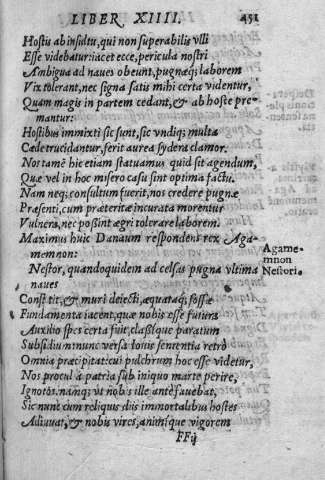 LIBER XIIII. 451
Hostis ab insultu, qui non superabilis vlli
Esse videbatur: iacet ecce, pericula nostri
Ambigua ad naues obeunt, pugnæq; laborem
Vix tolerant, nec signa satis mihi certa videntur,
Quam magis in partem cedant, & ab hoste pre-
mantur:
Hostibus immixti sic sunt, sic vndiq; multa
Cæde trucidantur, ferit aurea sydera clamor.
Nos tamē hic etiam statuamus quid sit agendum,
Quæ vel in hoc misero casu sint optima factu.
Nam neq; consultum fuerit, nos credere pugnæ
Præsenti, cum præterita incurata morentur
Vulnera, nec possint ægri tolerare laborem.
Maximus huic Danaum respondens rex Aga-
memnon:
Agamemnon
Nestori
Nestor, quandoquidem ad celsas pugna vltima
naues
Constitit, & muri deiecti, æquataq; fossæ
Fundamenta iacent, quæ nobis esse futura
Auxilio spes certa fuit, classiq́ue paratum
Subsidium: nunc versa Iouis sententia retrò
Omnia præcipitat: cui pulchrum hoc esse videtur,
Nos procul à patria sub iniquo marte perire,
Ignotos. namq; vt nobis ille antè fauebat,
Sic nunc cum reliquis diis immortalibus hostes
Adiuuat, & nobis vires, animíque vigorem
FF ij